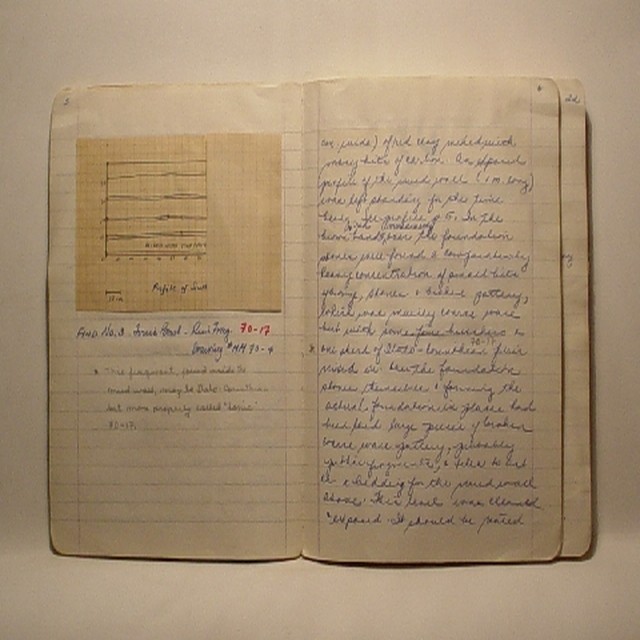 5
Profile of Wall
10 cm
Find No. 3. Ionic Bowl - Rim Frag. 70-17
Drawing # MM 70-4
This fragment, found inside the
mud wall, may be Italo-Corinthian
but more properly called "Ionic"
70-17.
6
side) of red clay mixed with
many bits of carbon. An exposed
profile of the mud wall (1 m. long)
was left standing for the time
being. See profile p. 5. In the
the foundation
stones were found a comparatively
heavy concentration of small bits
stones & broken pottery,
which was mainly coarse ware
but with some fine
70-17
one sherd of Italo-Corinthian
the foundation
stones themselves & forming the
actual foundation in places had
been laid large pieces of broken
coarse ware pottery, probably
pithos fragments, & tiles to act
as a bedding for the mud wall
above. This level was cleaned
& exposed. It should be noted